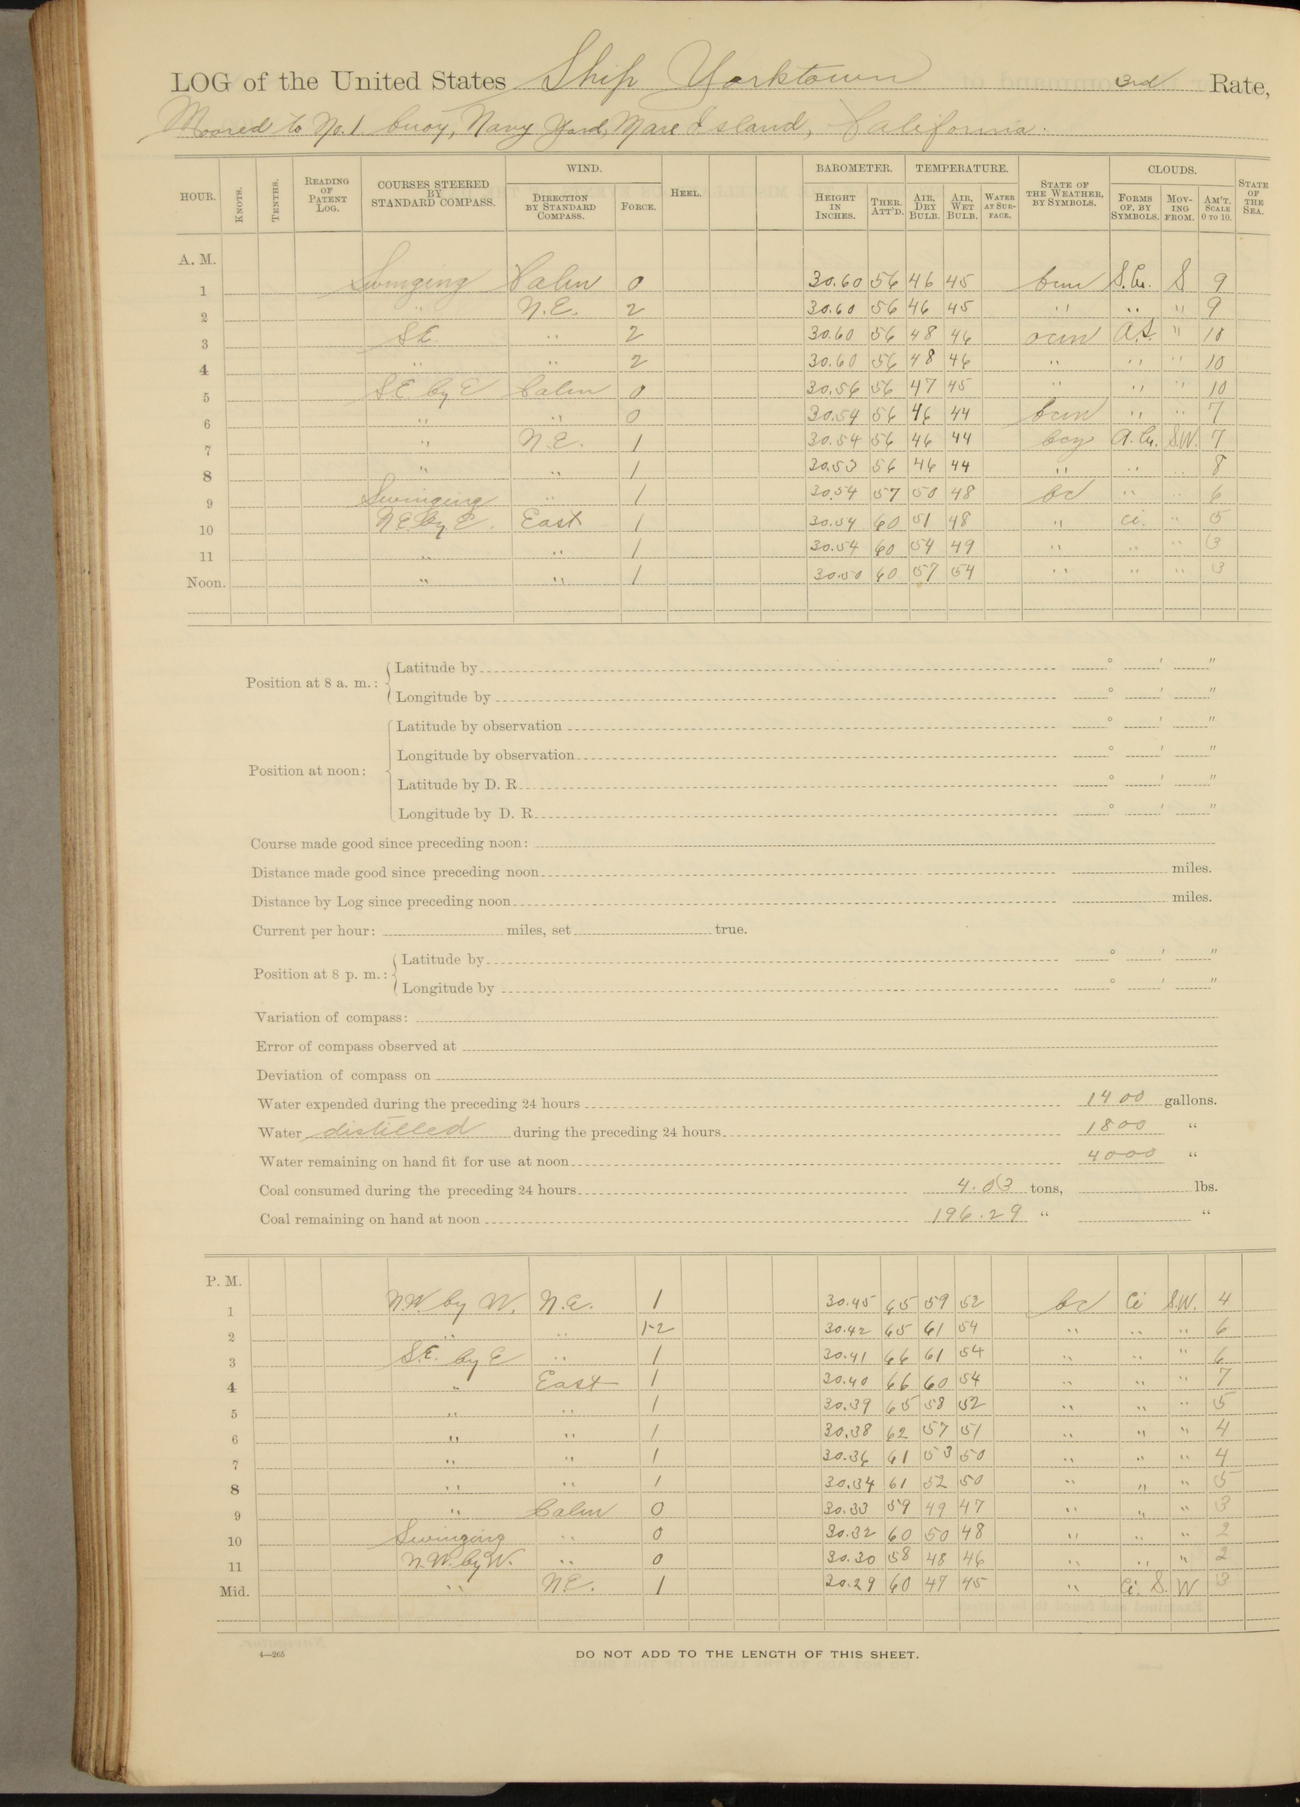 LOG of the United States Ship Yorktown 3rd Rate,
Moored to No.1 buoy, Navy Yard, Mare Island, California.
HOUR. KNOTS. TENTHS. READING OF PATENT LOG. COURSES STEERED BY STANDARD COMPASS. WIND. DIRECTION BY STANDARD COMPASS. FORCE. HEEL. BAROMETER. HEIGHT IN INCHES. THER. ATT'D. TEMPERATURE. AIR, DRY BULB. AIR, WET BULB. WATER AT SURFACE. STATE OF THE WEATHER, BY SYMBOLS. CLOUDS. FORMS OF, BY SYMBOLS. MOVING FROM. AM'T. SCALE 0 TO 10. STATE OF THE SEA.
A. M.
1 Swinging Calm 0 30.60 56 46 45 bcm S.Cu. S 9
2 " N.E. 2 30.60 56 46 45 " " " 9
3 S.E. " 2 30.60 56 48 46 ocm A.S. " 10
4 " " 2 30.60 56 48 46 " " " 10
5 S.E. by E Calm 0 30.56 56 47 45 " " " 10
6 " " 0 30.54 56 46 44 bcm " " 7
7 " N.E. 1 30.54 56 46 44 bcg A.Cu. S.W. 7
8 " " 1 30.53 56 46 44 " " " 8
9 Swinging " 1 30.54 57 50 48 bc " " 6
10 N.E. by E. East 1 30.54 60 51 48 " Ci. " 5
11 " " 1 30.54 60 54 49 " " " 3
Noon. " " 1 30.50 60 57 54 " " " 3
Position at 8 a. m.: Latitude by ° ' "
Longitude by ° ' "
Position at noon: Latitude by observation ° ' "
Longitude by observation ° ' "
Latitude by D. R. ° ' "
Longitude by D. R. ° ' "
Course made good since preceding noon:
Distance made good since preceding noon miles.
Distance by Log since preceding noon miles.
Current per hour: miles, set true.
Position at 8 p. m.: Latitude by ° ' "
Longitude by ° ' "
Variation of compass:
Error of compass observed at
Deviation of compass on
Water expended during the preceding 24 hours 1400 gallons.
Water distilled during the preceding 24 hours 1800 "
Water remaining on hand fit for use at noon 4000 "
Coal consumed during the preceding 24 hours 4.03 tons, lbs.
Coal remaining on hand at noon 196.29 " "
P. M.
1 N.W. by W. N.E. 1 30.45 65 59 52 bc Ci S.W. 4
2 " " 1-2 30.42 65 61 54 " " " 6
3 S.E. by E " 1 30.41 66 61 54 " " " 6
4 " East 1 30.40 66 60 54 " " " 7
5 " " 1 30.39 65 58 52 " " " 5
6 " " 1 30.38 62 57 51 " " " 4
7 " " 1 30.36 61 53 50 " " " 4
8 " " 1 30.34 61 52 50 " " " 5
9 " Calm 0 30.33 59 49 47 " " " 3
10 Swinging " 0 30.32 60 50 48 " " " 2
11 N.W. by W. " 0 30.30 58 48 46 " " " 2
Mid. " N.E. 1 30.29 60 47 45 " Ci. S. W 3
4—265 DO NOT ADD TO THE LENGTH OF THIS SHEET.